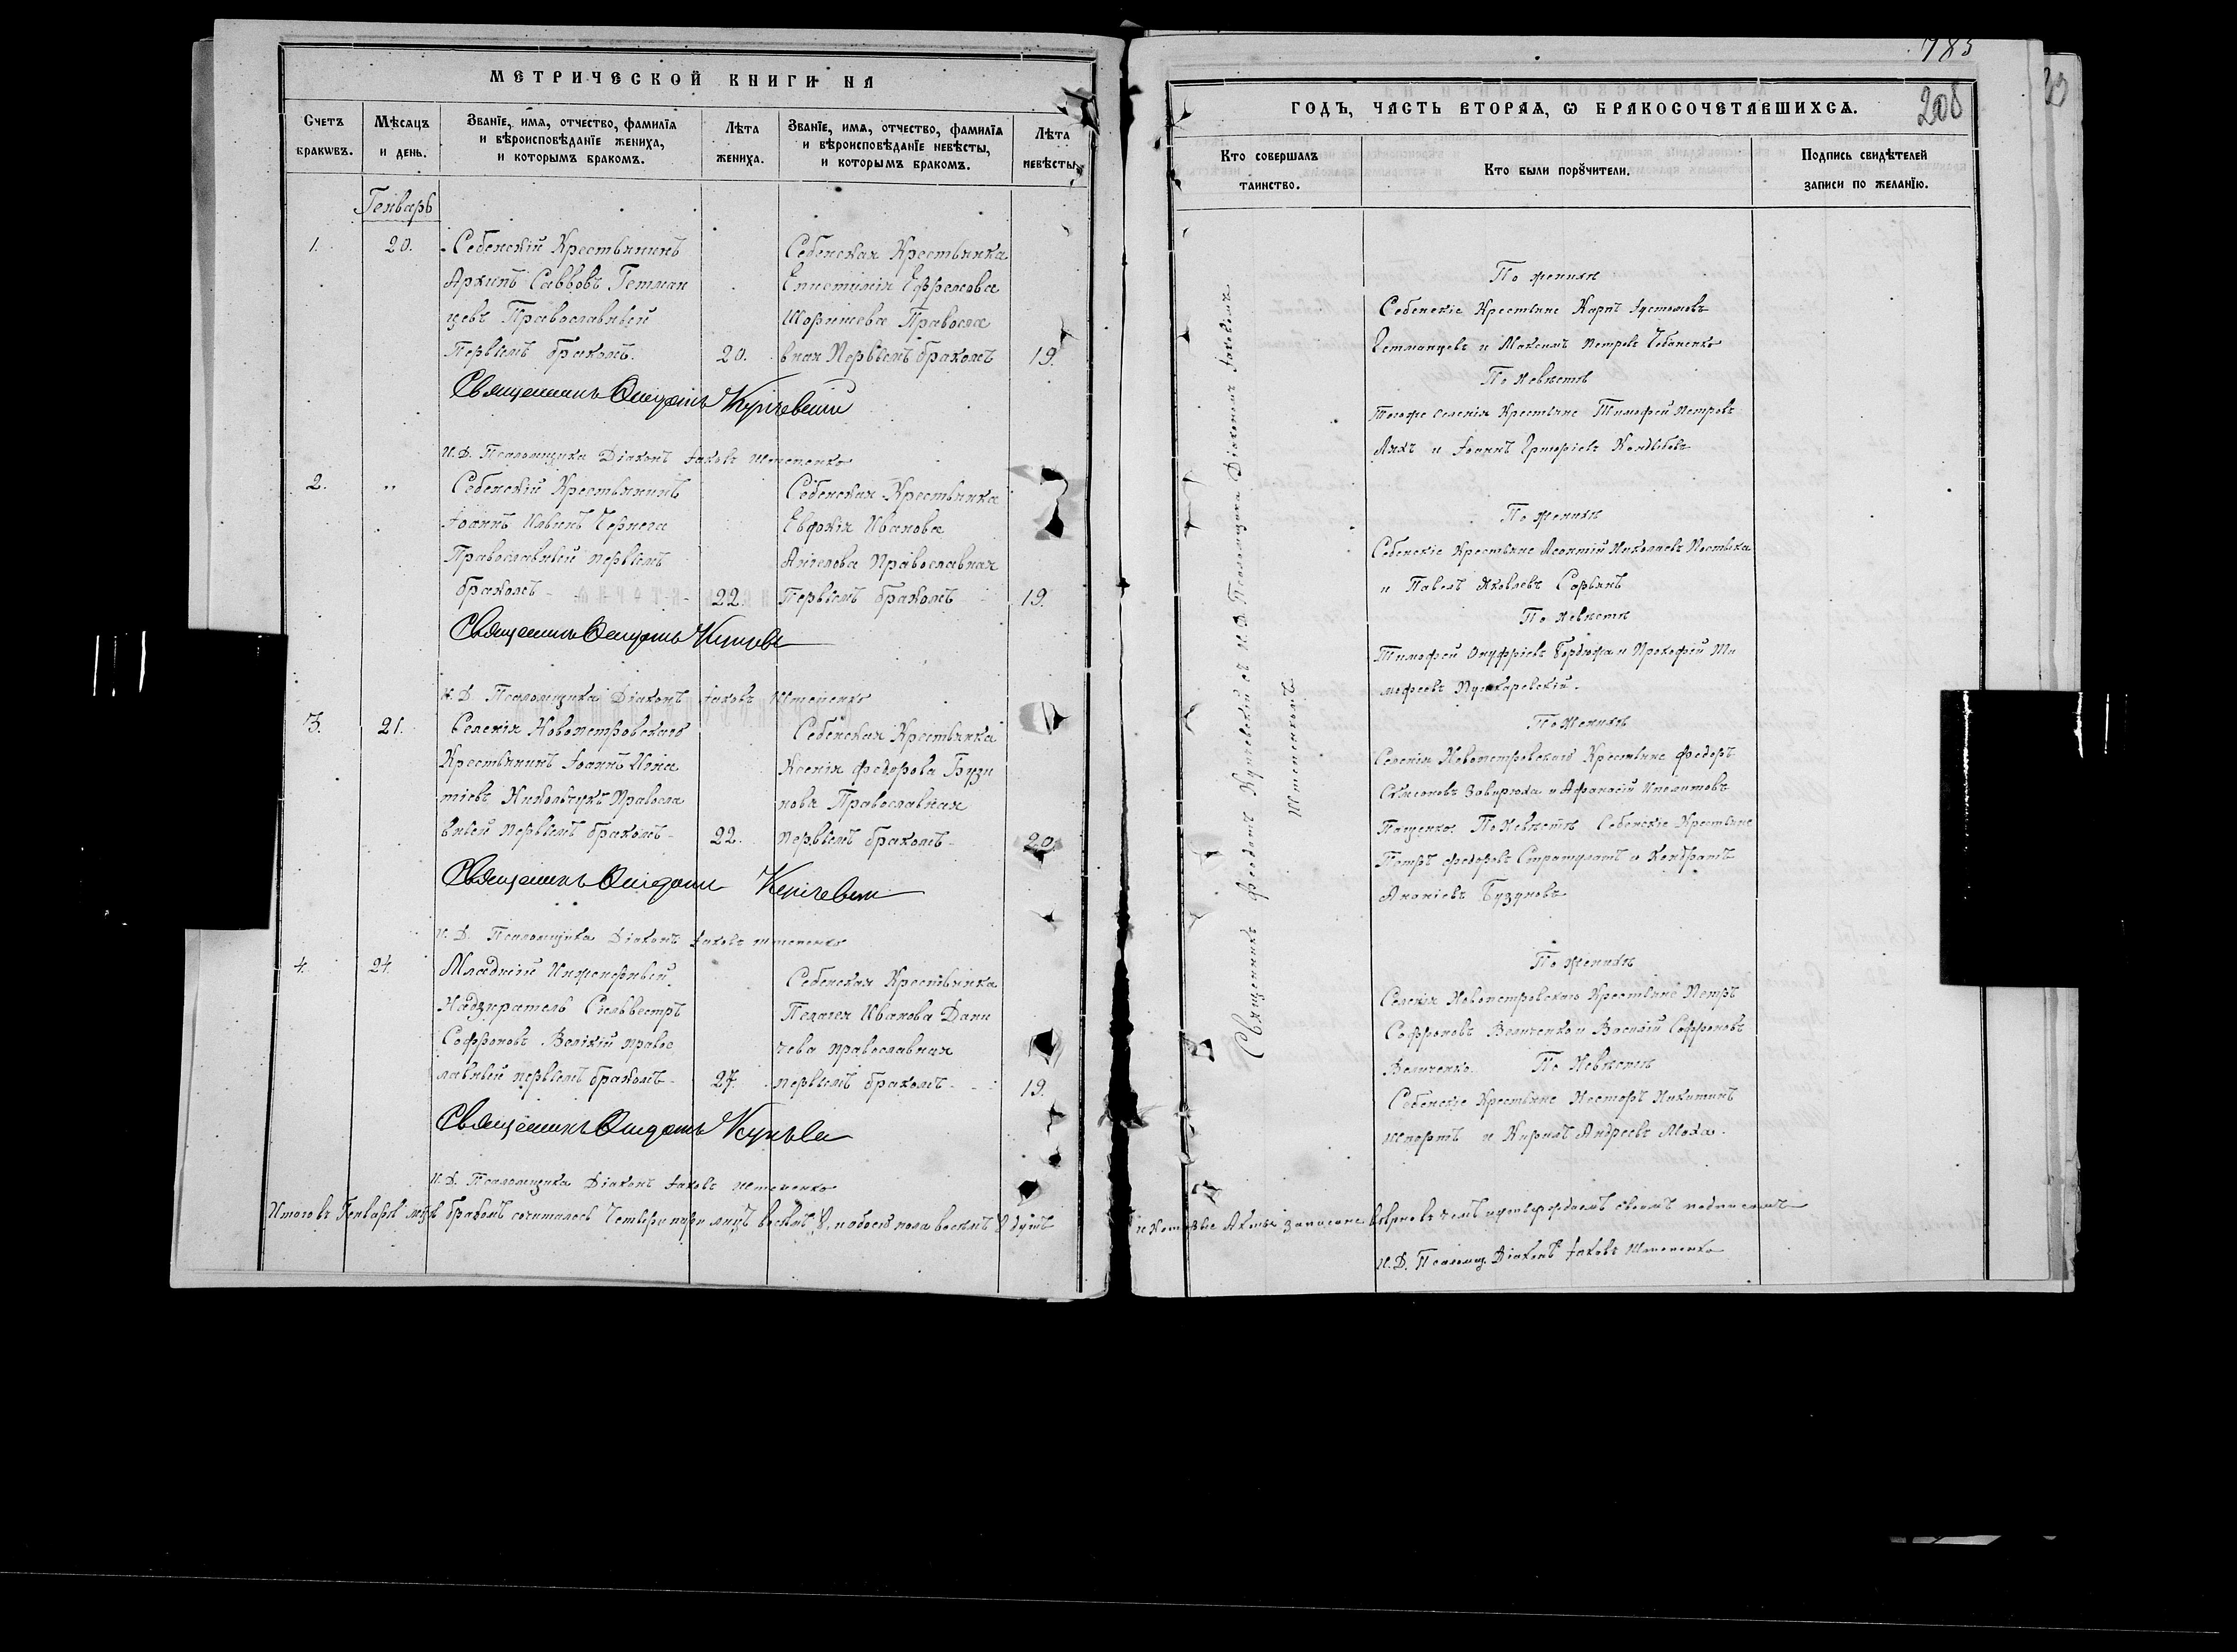 МЕТРИЧЕСКОЙ КНИГИ НА
Счетъ браковъ.
Мѣсяцъ и день.
Званіе, имя, отчество, фамилія
и вѣроисповѣданіе жениха,
и которымъ бракомъ.
Лѣта жениха.
Званіе, имя, отчество, фамилія
и вѣроисповѣданіе невѣсты,
и которымъ бракомъ.
Лѣта невѣсты.
Генварь
1. 20. Себенскій Крестьянинъ
Архипъ Саввовъ Гетман
цевъ Православный
Первымъ бракомъ. 20.
Себенская Крестьянка
Епистимія Ефремова
Православ
ная Первымъ бракомъ 19.
Священникъ Феодотъ Купчевскій
И. Д. Псаломщика Діаконъ Іаковъ Штепенко
2. „ Себенскій Крестьянинъ
Іоаннъ Ильинъ Чернега
Православный первымъ
бракомъ 22.
Себенская Крестьянка
Евфкія Иванова
Ангелова Православная
Первымъ бракомъ 19.
Священникъ Феодотъ
И. Д. Псаломщика Діаконъ Іаковъ Штепенко
3. 21. Селенія Новопетровскаго
Крестьянинъ Іоаннъ Игна
тіевъ Никольчукъ Правосла
вный первымъ бракомъ 22.
Себенская Крестьянка
Ксенія Федорова Бузу
нова Православная
первымъ бракомъ 20.
Священникъ Феодотъ Купчевскій
И. Д. Псаломщика Діаконъ Іаковъ Штепенко
4. 24. Младшій
Надзиратель Сильвестръ
Софроновъ Великій правос
лавный первымъ бракомъ 27.
Себенская Крестьянка
Пелагея Иванова Дани
чева православная
первымъ бракомъ 19.
Священникъ Феодотъ
И. Д. Псаломщика Діаконъ Іаковъ Штепенко
Итого въ Генварѣ м-цѣ бракомъ сочиталось Четыре пары лицъ восемь 8, и обоего пола восемь 8 душъ
785
208
ГОДЪ, ЧАСТЬ ВТОРАЯ, Ѡ БРАКОСОЧЕТАВШИХСЯ.
Кто совершалъ таинство.
Кто были порꙋчители.
Подпись свидѣтелей
записи по желанію.
Священникъ Феодотъ Купчевскій съ И. Д. Псаломщика Діакономъ Іаковомъ
Штепенкомъ
По женихѣ
Себенскіе Крестьяне Карпъ
Гетманцевъ и Максимъ Петровъ Чебаненко
По невѣстѣ
Тогоже селенія Крестьяне Тимофей Петровъ
Ляхъ и Іоаннъ Григоріевъ
По женихѣ
Себенскіе Крестьяне Леонтій Николаевъ
и Павелъ Яковлевъ
По невѣстѣ
Тимофей Онуфріевъ и Прокофій Ти
мофеевъ Пушкаревскій.
По женихѣ
Селенія Новопетровскаго Крестьяне Федоръ
Завирюха и Афанасій Ипполитовъ
Пащенко. По невѣстѣ Себенскіе Крестьяне
Петръ Федоровъ Стратулатъ и Кондратъ
Ананіевъ Бузуновъ
По женихѣ
Селенія Новопетровскаго Крестьяне Петръ
Софроновъ Величенко и Василій Софроновъ
Величенко. По невѣстѣ
Себенскіе Крестьяне Несторъ Никитинъ
и Кирилъ Андреевъ Моха.
и Которые Акты записаны вѣрно въ чемъ и утверждаемъ своимъ подписомъ
И. Д. Псаломщ. Діаконъ Іаковъ Штепенко